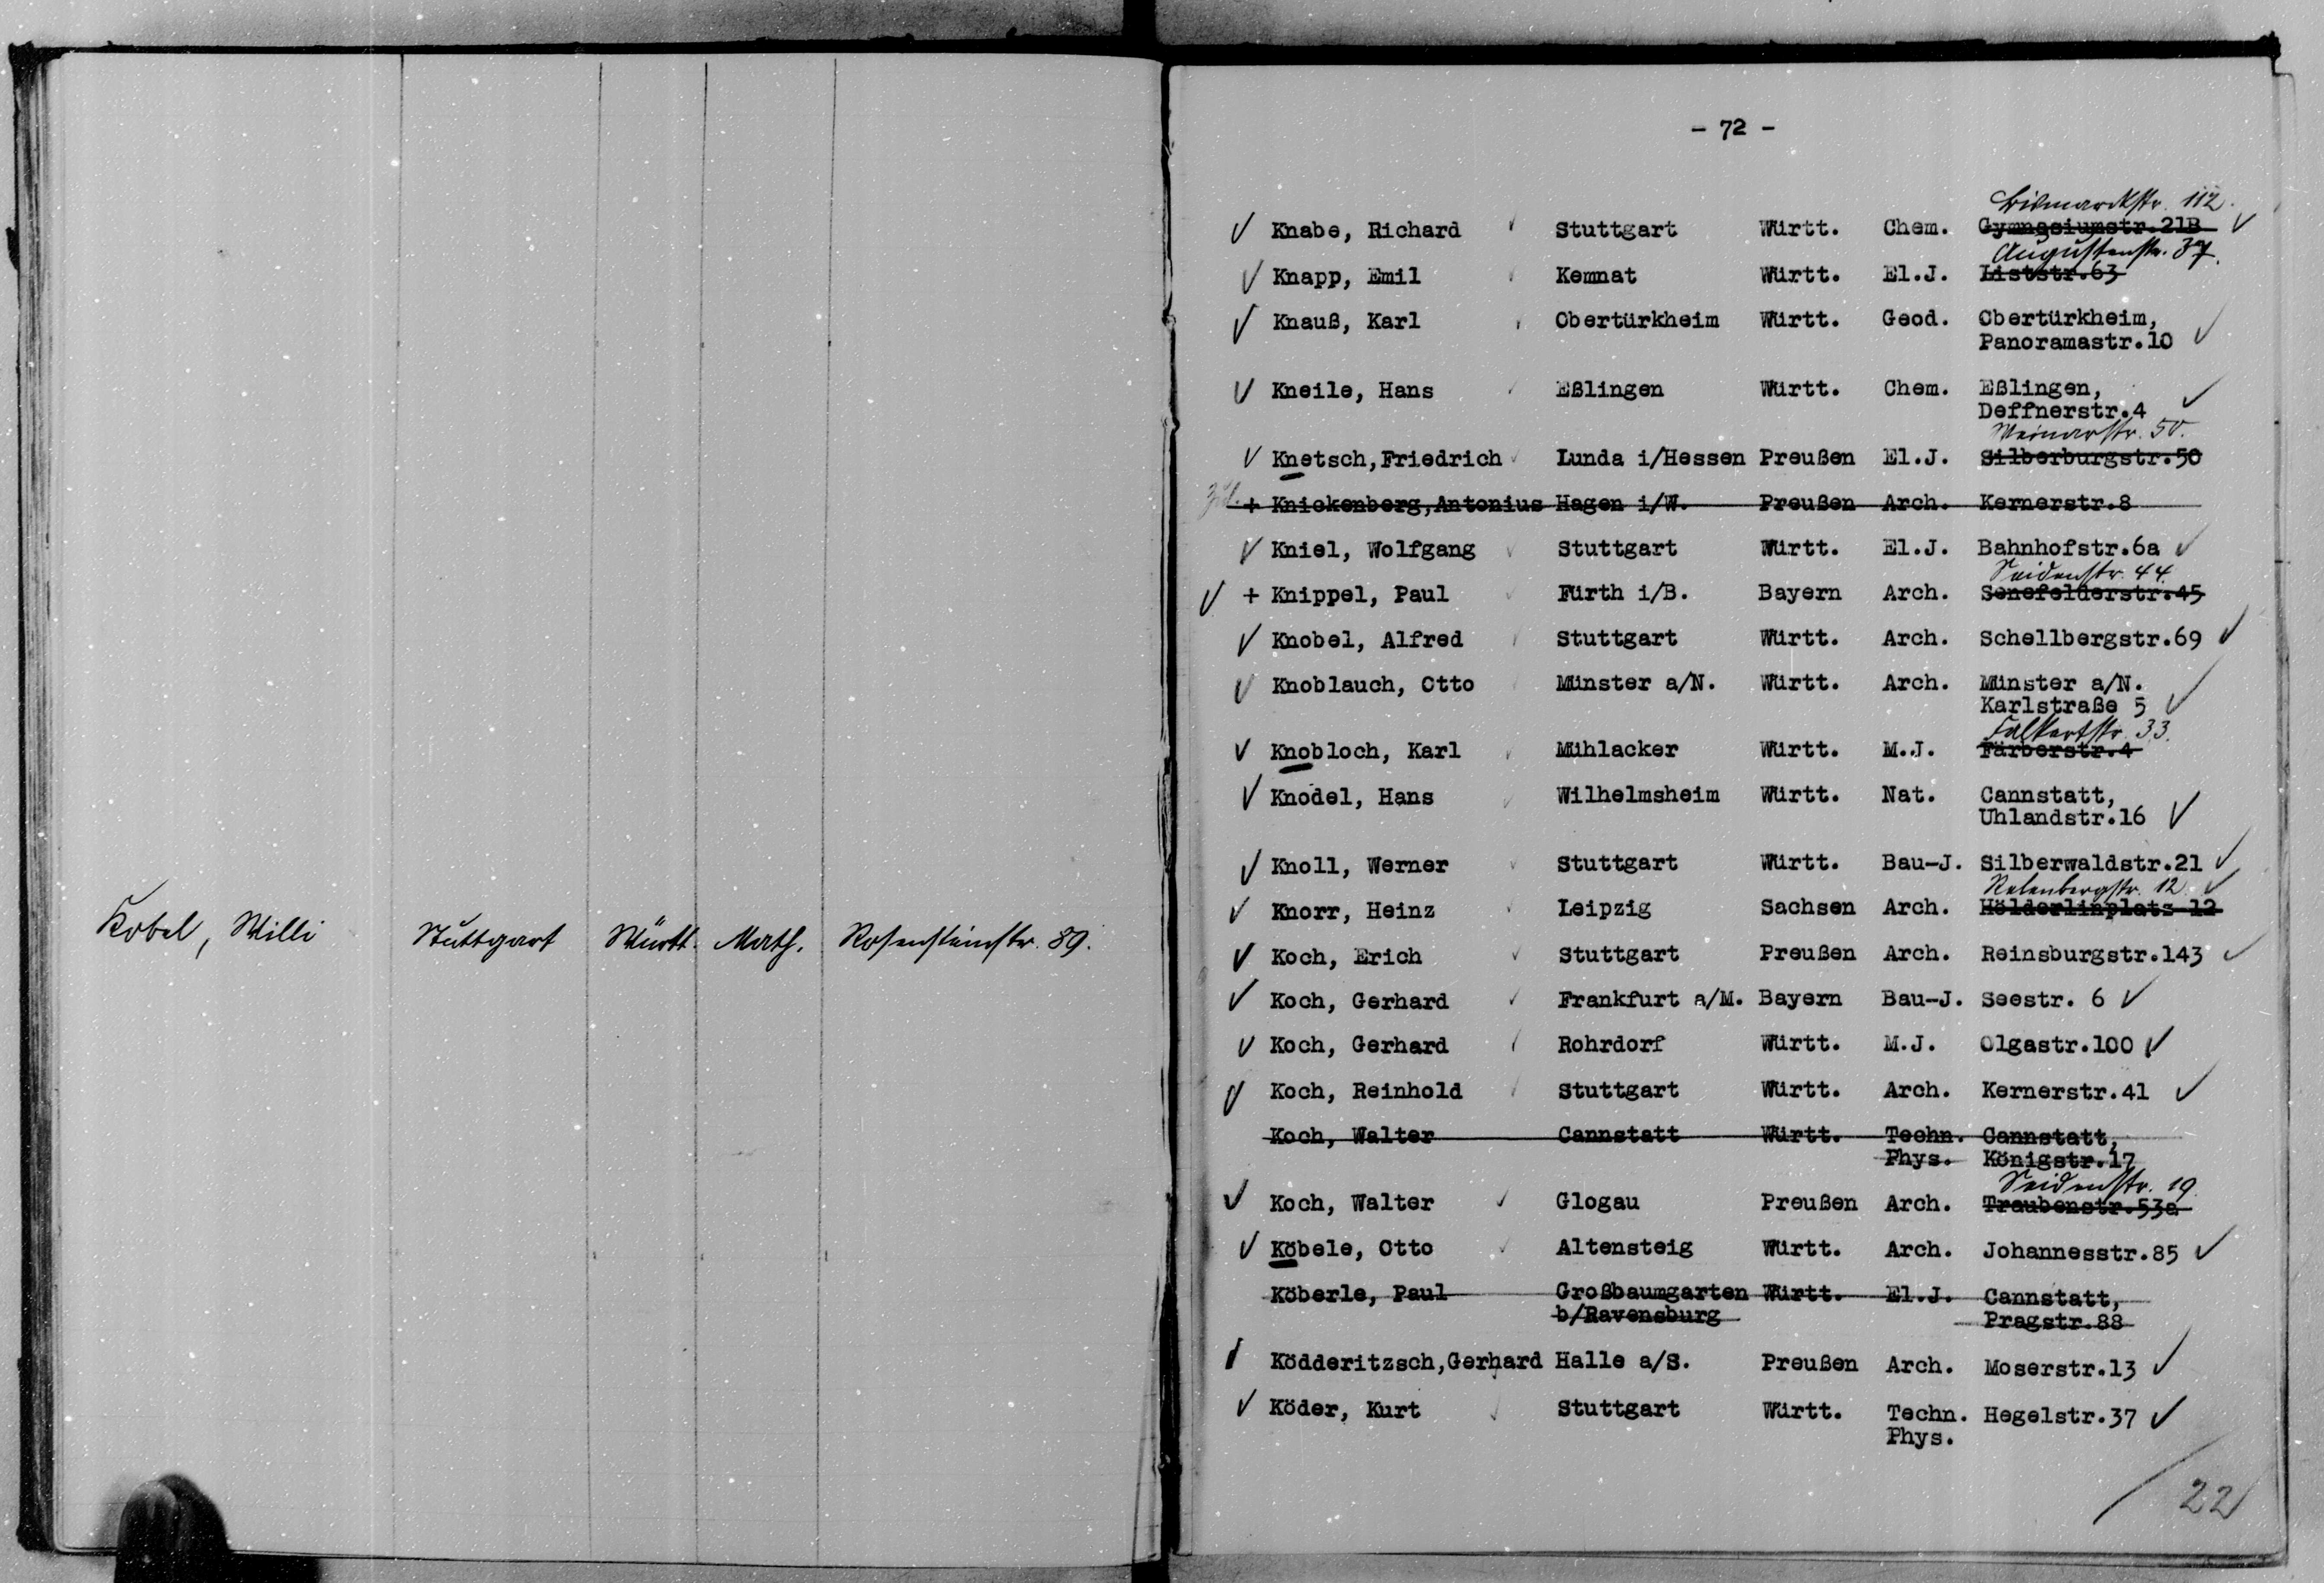 Kobel, Willi Stuttgart Württ. Math. Rosensteinstr. 89.
- 72 -
Bismarckstr. 112.
Knabe, Richard Stuttgart Württ. Chem. Gymnasiumstr.21B
Augustenstr. 37.
Knapp, Emil Kemnat Württ. El.J. Liststr.63
Knauß, Karl Obertürkheim Württ. Geod. Obertürkheim,
Panoramastr.10
Kneile, Hans Eßlingen Württ. Chem. Eßlingen,
Deffnerstr.4
Weimarstr. 50.
Knetsch,Friedrich Lunda i/Hessen Preußen El.J. Silberburgstr.50
+ Knickenberg,Antonius Hagen i/W. Preußen Arch. Kernerstr.8
Kniel, Wolfgang Stuttgart Württ. El.J. Bahnhofstr.6a
Seidenstr. 44.
+ Knippel, Paul Fürth i/B. Bayern Arch. Senefelderstr.45
Knobel, Alfred Stuttgart Württ. Arch. Schellbergstr.69
Knoblauch, Otto Münster a/N. Württ. Arch. Münster a/N.
Karlstraße 5
Falkertstr. 33.
Knobloch, Karl Mühlacker Württ. M.J. Färberstr.4
Knodel, Hans Wilhelmsheim Württ. Nat. Cannstatt,
Uhlandstr.16
Knoll, Werner Stuttgart Württ. Bau-J. Silberwaldstr.21
Relenbergstr. 12.
Knorr, Heinz Leipzig Sachsen Arch. Hölderlinplatz 12
Koch, Erich Stuttgart Preußen Arch. Reinsburgstr.143
Koch, Gerhard Frankfurt a/M. Bayern Bau-J. Seestr. 6
Koch, Gerhard Rohrdorf Württ. M.J. Olgastr.100
Koch, Reinhold Stuttgart Württ. Arch. Kernerstr.41
Koch, Walter Cannstatt Württ. Techn. Cannstatt,
Phys. Königstr.17
Seidenstr. 19.
Koch, Walter Glogau Preußen Arch. Traubenstr.53a
Köbele, Otto Altensteig Württ. Arch. Johannesstr.85
Köberle, Paul Großbaumgarten Württ. El.J. Cannstatt,
b/Ravensburg Pragstr.88
Ködderitzsch,Gerhard Halle a/S. Preußen Arch. Moserstr.13
Köder, Kurt Stuttgart Württ. Techn. Hegelstr.37
Phys.
22